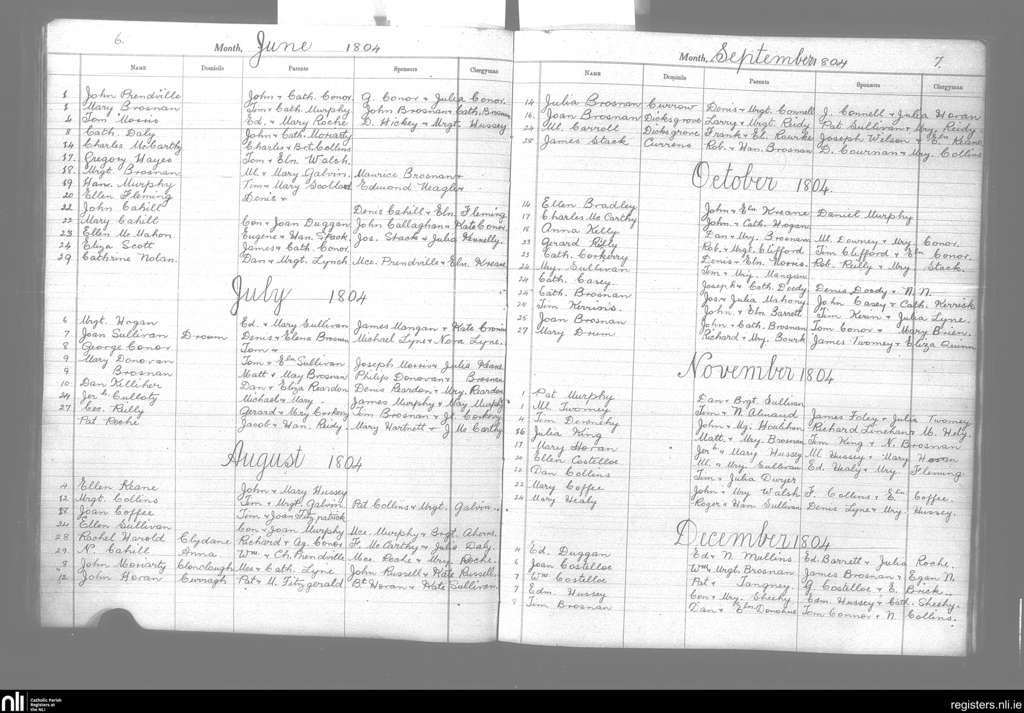 6.
Month, June 1804
NAME Domicile Parents Sponsors Clergyman
1 John Prendville John + Cath. Conor G. Conor + Julia Conor.
3 Mary Brosnan Tim + Cath. Murphy John Brosnan + Cath. Brosnan
4 Tom Morris Ed. + Mary Roche D. Hickey + Mrgt. Hussey
8 Cath. Daly John + Cath. Moriarty
14 Charles McCarthy Charles + Bet. Collins
17. Gregory Hayes Tom + Eln Walsh.
18. Mrgt Brosnan Ml + Mary Galvin. Maurice Brosnan +
19 Han. Murphy Tim + Mary Scollard Edmond Neagle +
20 Ellen Fleming Denis +
22 John Cahill Denis Cahill + Eln. Fleming
22 Mary Cahill Con + Joan Duggan John Callaghan + Kate Conor.
23 Ellen McMahon Eugene + Han. Stack Jos. Stack + Julia
24 Eliza Scott James + Cath. Conor
29 Cathrine Nolan. Dan + Mrgt. Lynch Mce. Prendville + Eln. Kreane
July 1804
6 Mrgt. Hogan Ed. + Mary Sullivan James Mangan + Kate Cronin
7 Joan Sullivan Droom Denis + Elena Brosnan Michael Lyne + Nora Lyne.
8 George Conor Tom +
9 Mary Donovan Tom + Eln Sullivan Joseph Morris + Julia Keane
9 Brosnan Matt + May Brosnan Philip Donovan + Brosnan
10 Dan Kelliher Dan + Eliza Reardon Denis Reardon + Mry. Reardon
24 Jerh. Culloty Michael + Mary James Murphy + May Murphy
27 Geo. Reilly Gerard + Mry Corkery Tim Brosnan + Corkery
Pat Roche Jacob + Han. Reidy. Mary Hartnett + J. McCarthy
August 1804
4 Ellen Keane John + Mary Hussey
12 Mrgt. Collins Tim + Mrgt. Galvin Pat Collins + Mrgt. Galvin
18 Joan Coffee Tim + Joan Fitzpatrick
24 Ellen Sullivan Con + Joan Murphy Mce. Murphy + Brgt. Ahern.
28 Rachel Harold Clydane Richard + Ag. Conor F. McCarthy + Julia Daly.
29. N. Cahill Anna Wm. + Ch. Prendville Mce. Roche + Mry. Roche.
8 John Moriarty Clonclough Mce + Cath. Lyne John Russell + Kate Russell.
12 John Horan Curragh Pat + M. Fitzgerald Bt. Horan + Kate Sullivan
Month, September 1804 7.
NAME Domicile Parents Sponsors Clergyman
14 Julia Brosnan Currow Denis + Mrgt. Connell J. Connell + Julia Horan
16 Joan Brosnan Dicksgrove Larry + Mrgt. Reidy Pat Sullivan + Mry. Reidy
24 Ml. Carroll Dicksgrove Frank + Eln Rourke Joseph Wilson + Eln Keane
28 James Stack Currens Rob. + Han. Brosnan D. Cournan + Mry. Collins
October 1804.
14 Ellen Bradley John + Eln Kreane Daniel Murphy
17 Charles McCarthy John + Cath. Hogane
18 Anna Kelly Dan + Mry. Brosnan Ml. Downey + Mry. Conor.
23 Gerard Reilly Rob. + Mrgt. Clifford Tim Clifford + Eln Conor.
23 Cath. Corkerry Denis + Eln. Morris. Rob. Reilly + Mry. Stack.
24 Mry. Sullivan Tim + Mry. Mangan
24 Cath. Casey Joseph + Cath. Doody Denis Doody + N. N.
24 Cath. Brosnan Jos + Julia Mahony John Casey + Cath. Kerrisk
24 Tim Kerrinis John + Eln Barrett Tim Kerin + Julia Lyne.
25 Joan Brosnan John + Cath. Brosnan Tom Conor + Mary Brien.
27 Mary Drum Richard + Mry. Bourk James Twomey + Eliza Quinn
November 1804
1 Pat Murphy Dan + Brgt. Sullivan
1 Ml. Twomey Tim + N. Almaud James Foley + Julia Twomey
4 Tim Dennehy John + Mg. Houlihan Richard Linehan + M. Hely.
16 Julia King Matt. + Mry. Brosnan Tim King + N. Brosnan
17 Mary Horan Jerh + Mary Hussey Ml. Hussey + Mary Horan
20 Ellen Costelloe Ml. + Mry. Sullivan Ed. Healy + Mry. Fleming.
22 Dan Collins Tim + Julia Dwyer
22 Mary Coffee John + Mry. Walsh F. Collins + Eln Coffee.
24 Mary Healy Roger + Han Sullivan Denis Lyne + Mry. Hussey.
December 1804
4 Ed. Duggan Ed + N. Mullins Ed. Barrett + Julia Roche.
6 Joan Costelloe Wm + Mrgt. Brosnan James Brosnan + Egan N.
7 Wm Costelloe Pat + Tangney G. Costelloe + E. Brick.
7 Edm. Hussey Con + Mry. Sheehy Edm. Hussey + Cath. Sheehy.
8 Tim Brosnan Dan + Eln Donohue Tom Connor + N. Collins.
nli Catholic Parish Registers at the NLI
registers.nli.ie